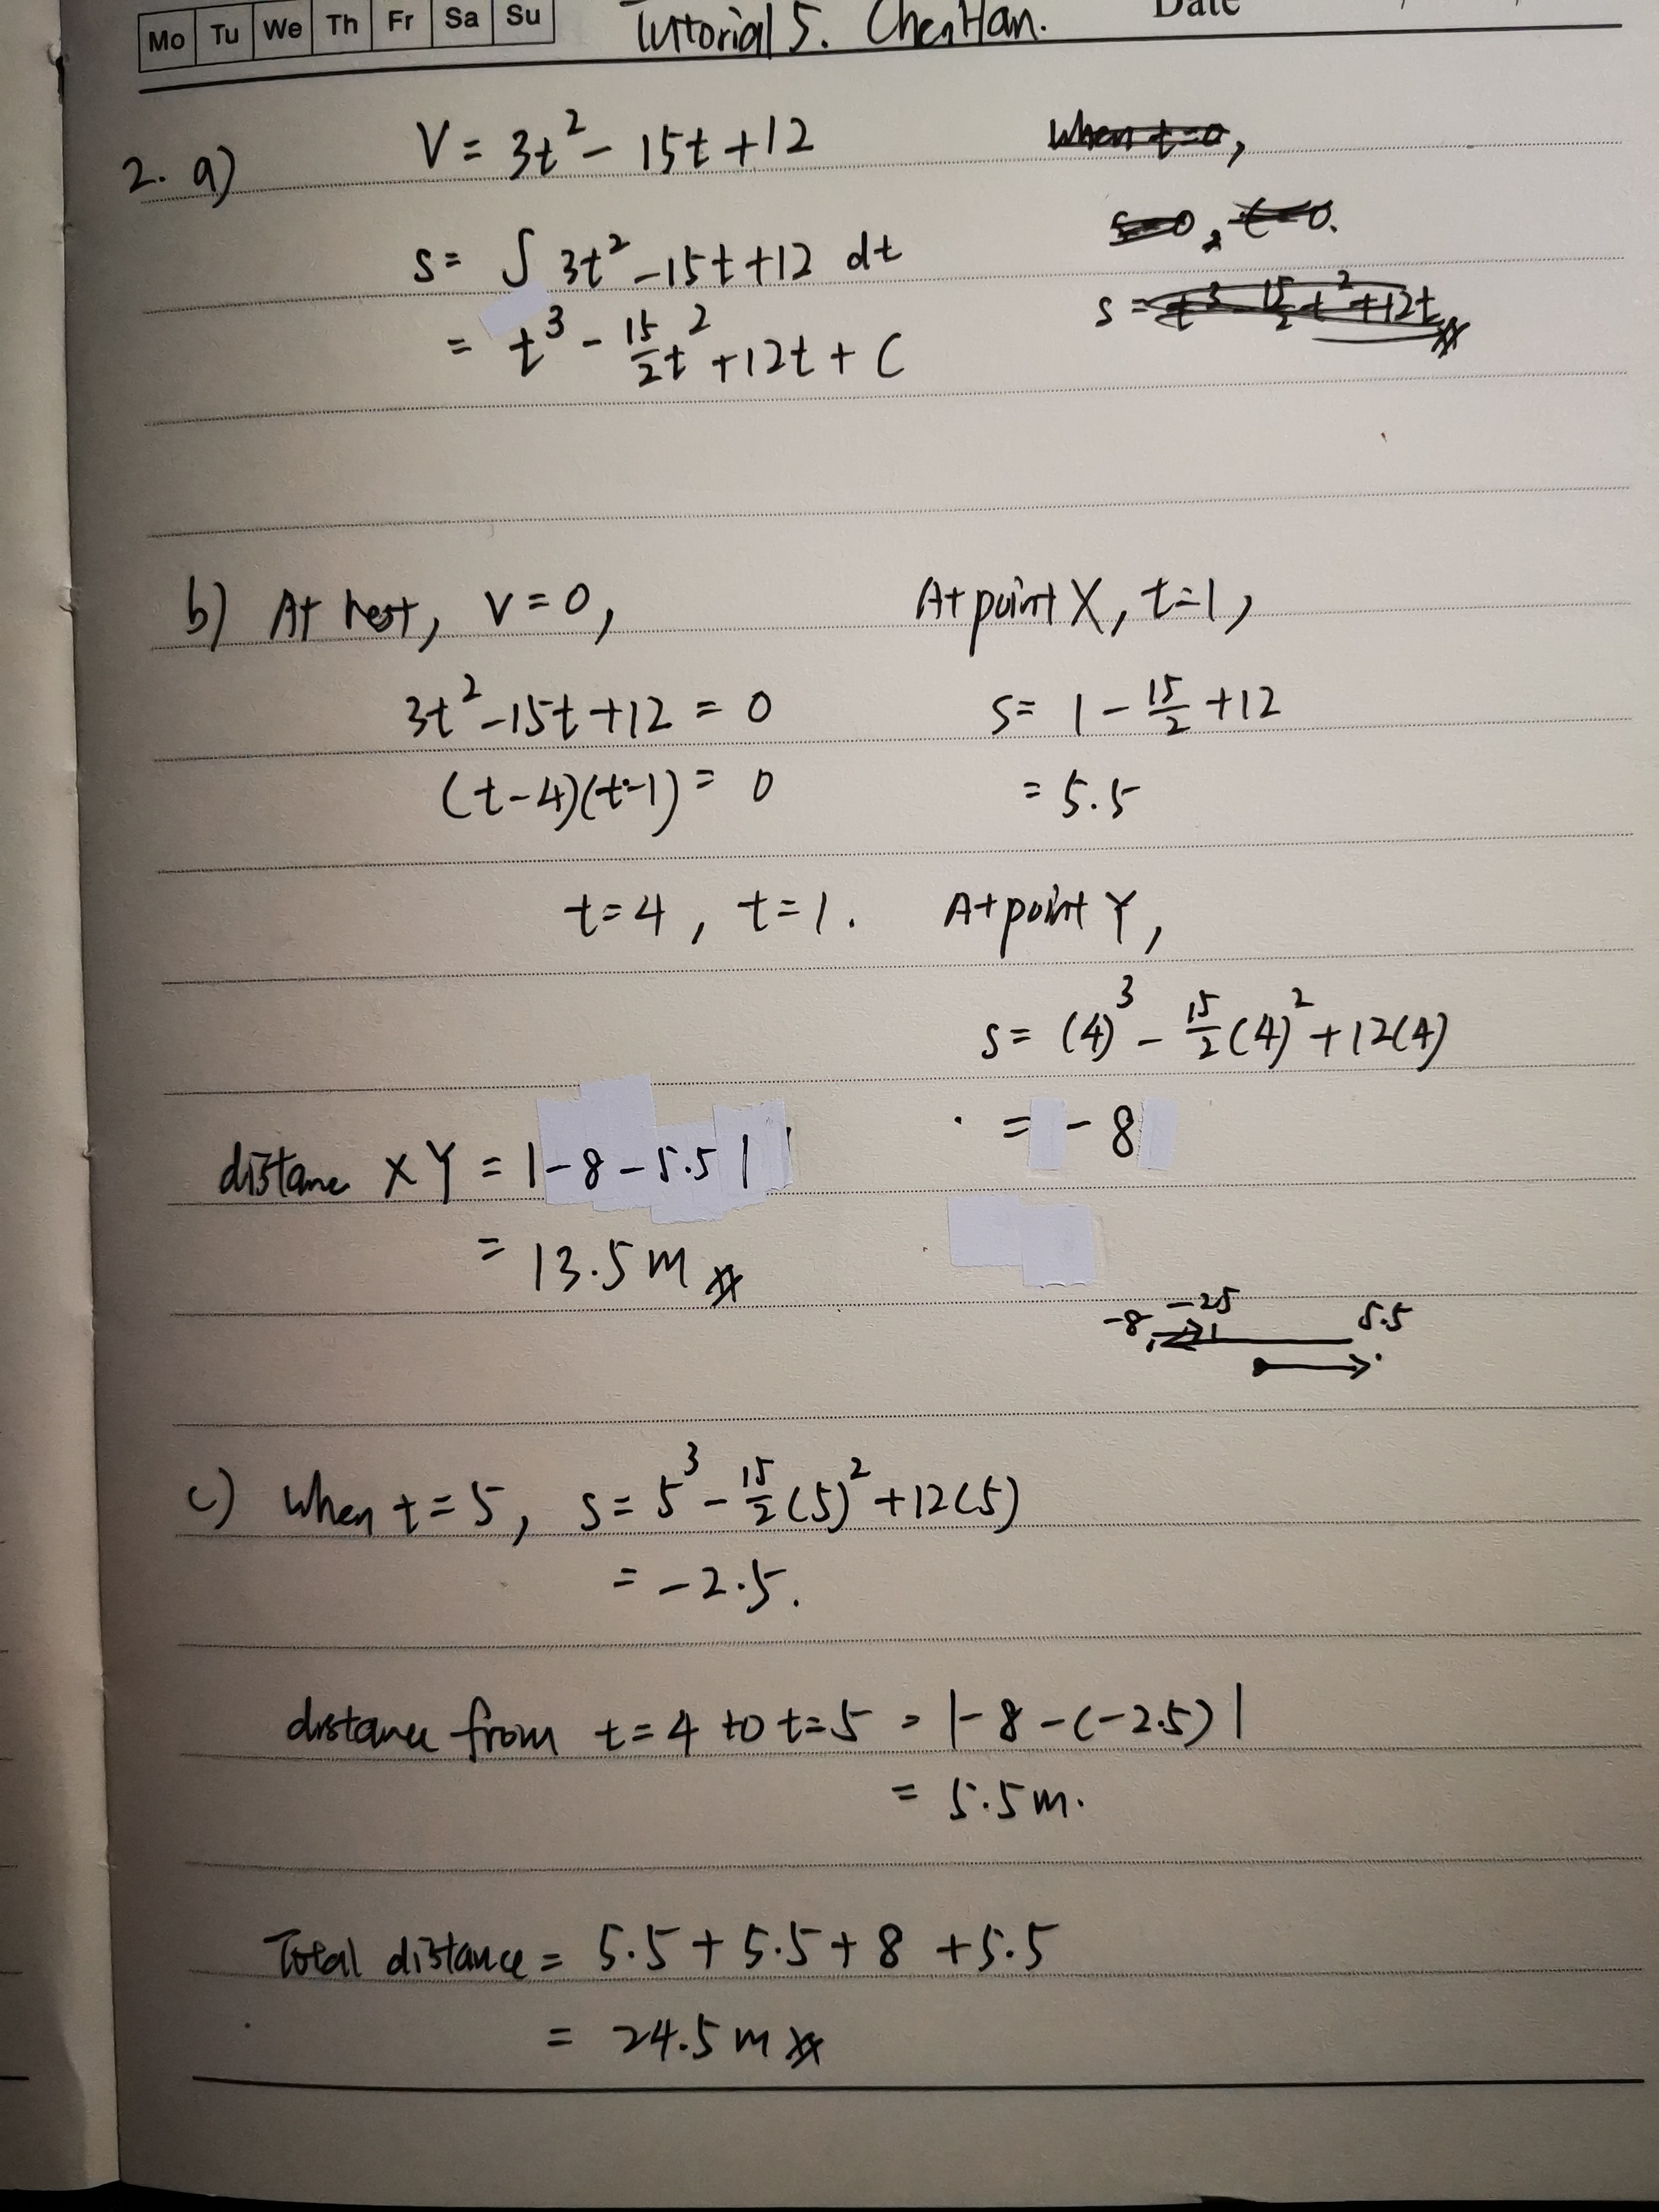 Mo Tu We Th Fr Sa Su Tutorial 5. ChenHan. Date
2. a) V = 3t² - 15t + 12
When t=0,
s = ∫ 3t² - 15t + 12 dt
s=0, c=0.
= t³ - 15/2 t² + 12t + C
s = t³ - 15/2 t² + 12t
b) At rest, v = 0,
3t² - 15t + 12 = 0
(t-4)(t-1) = 0
t=4, t=1.
At point X, t=1,
s = 1 - 15/2 + 12
= 5.5
At point Y,
s = (4)³ - 15/2 (4)² + 12(4)
= -8
distance XY = |-8 - 5.5|
= 13.5 m
-8 -2.5 5.5
c) When t = 5, s = 5³ - 15/2 (5)² + 12(5)
= -2.5.
distance from t=4 to t=5 = |-8-(-2.5)|
= 5.5m.
Total distance = 5.5 + 5.5 + 8 + 5.5
= 24.5 m